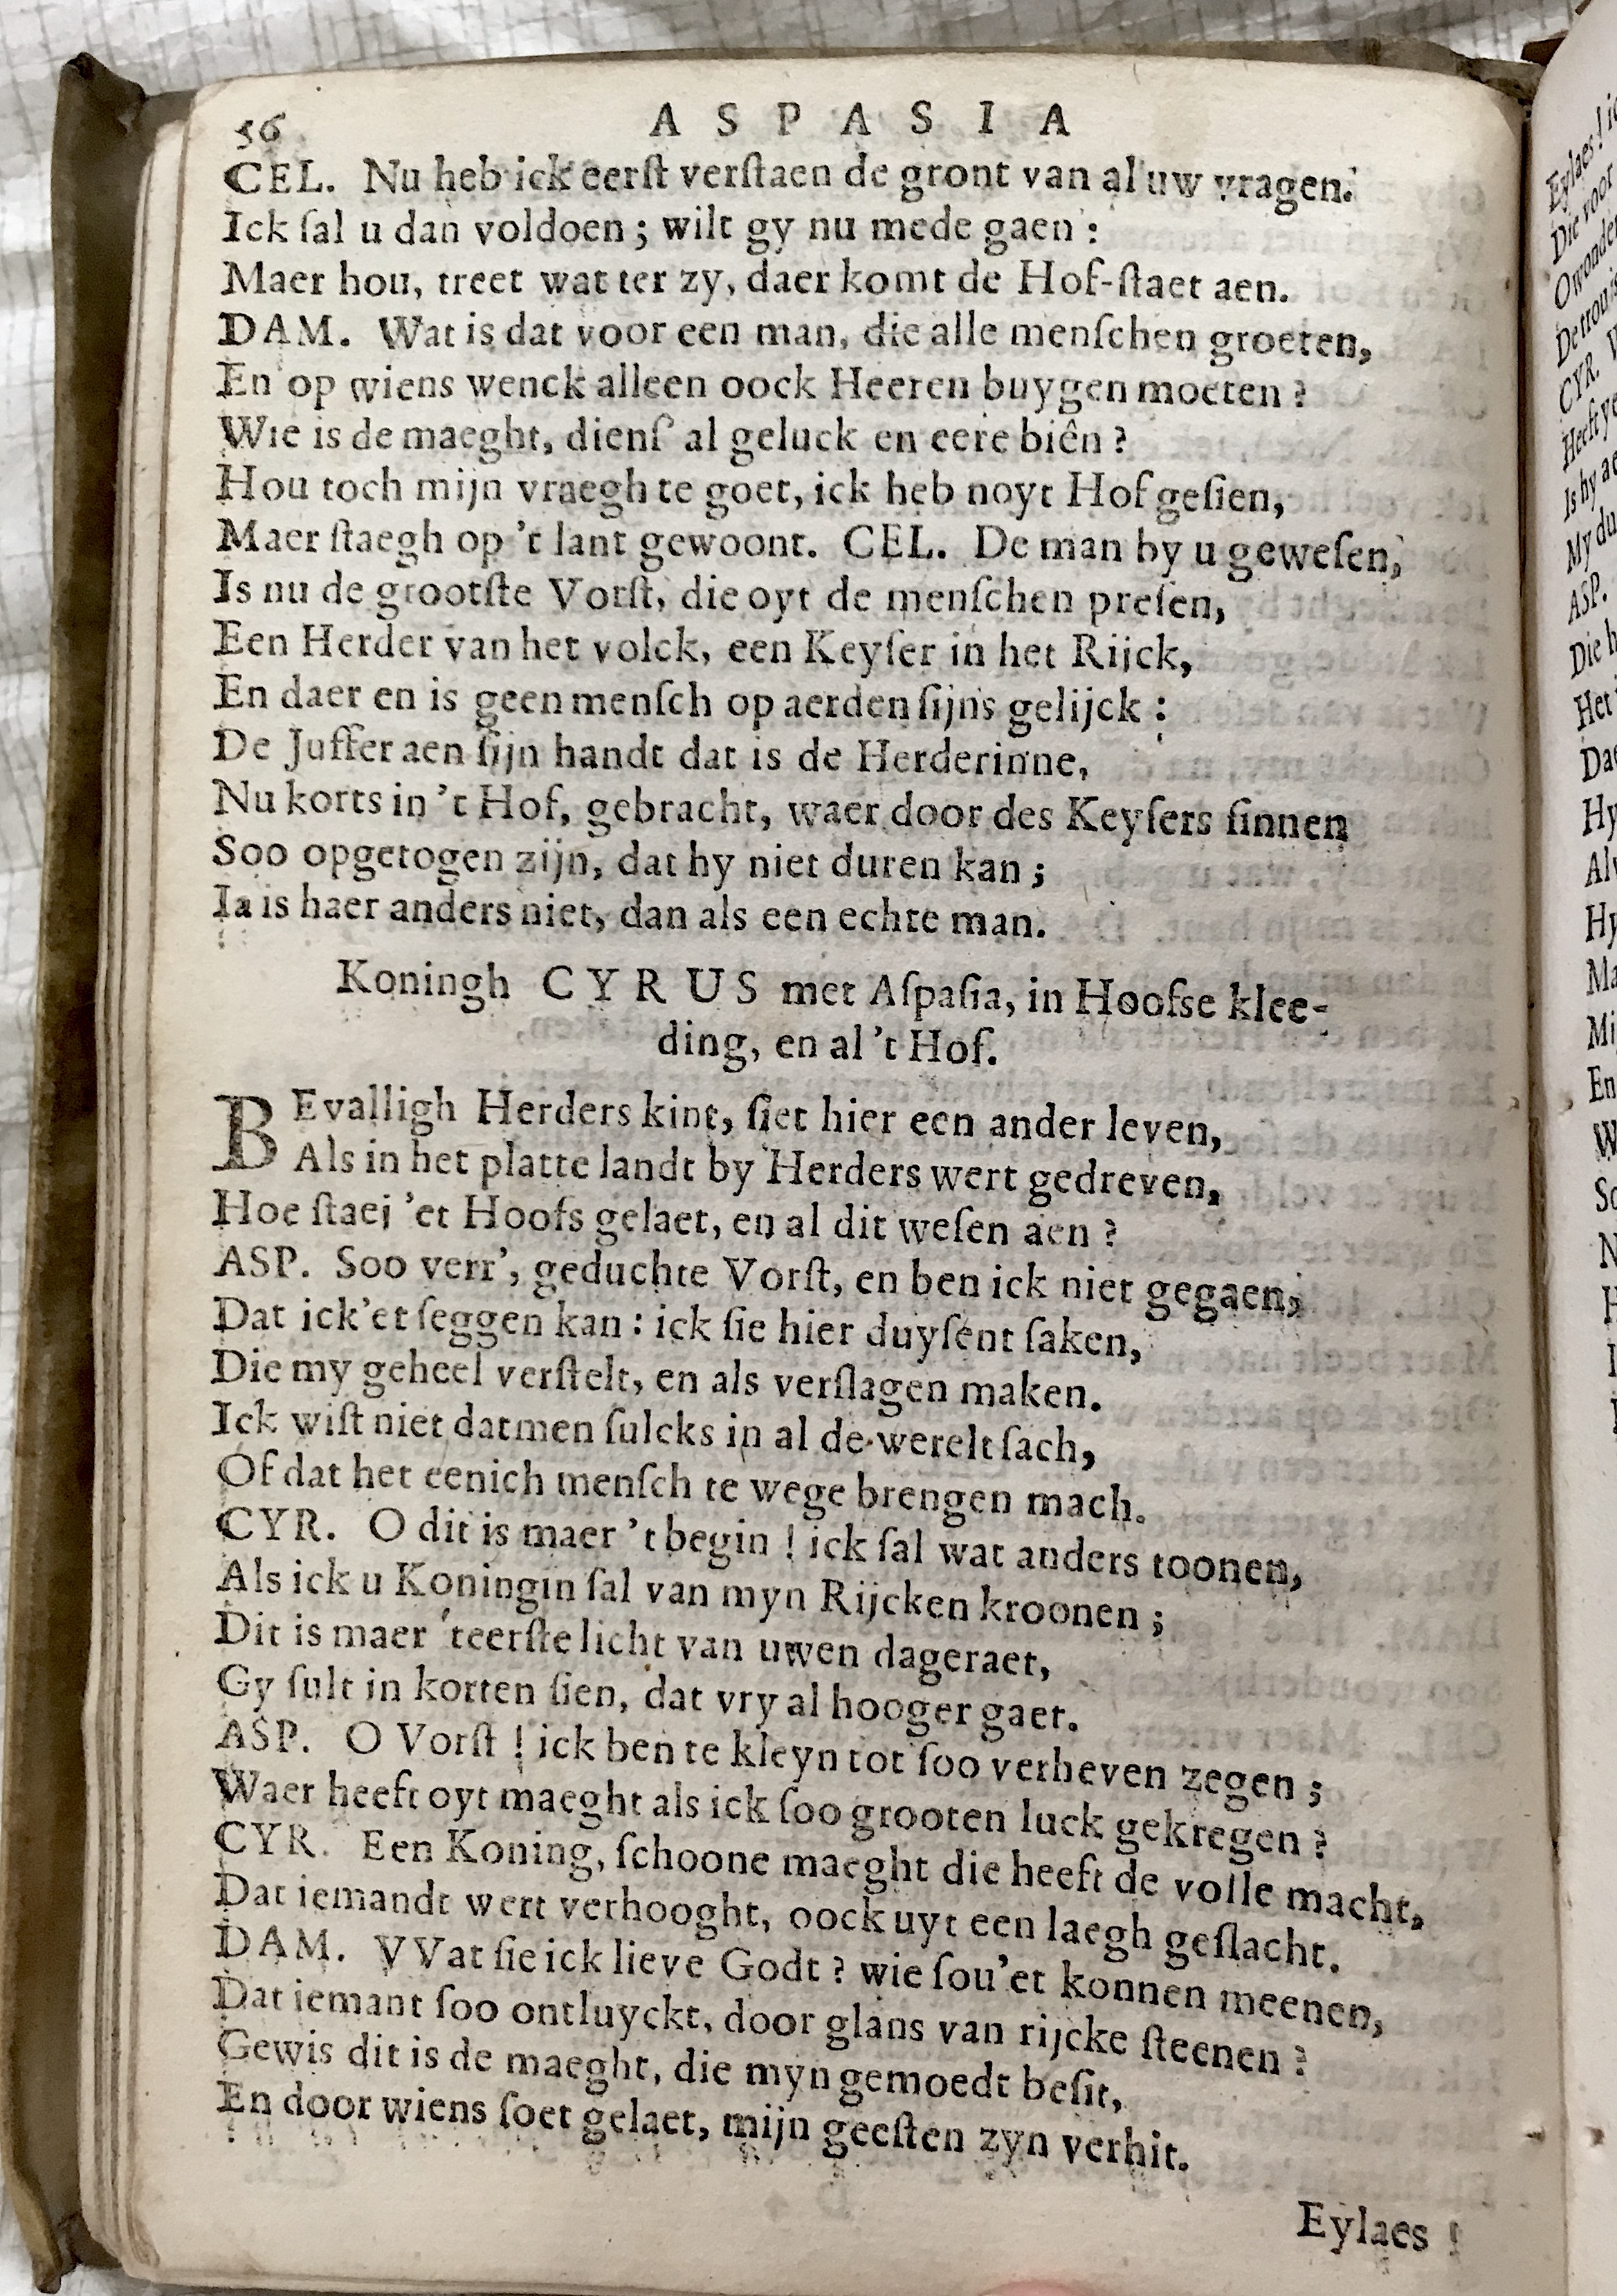 56 ASPASIA
CEL. Nu heb ick eerſt verſtaen de gront van al uw vragen.
Ick ſal u dan voldoen; wilt gy nu mede gaen:
Maer hou, treet wat ter zy, daer komt de Hof-ſtaet aen.
DAM. Wat is dat voor een man, die alle menſchen groeten,
En op wiens wenck alleen oock Heeren buygen moeten?
Wie is de maeght, dienſ' al geluck en eere biên?
Hou toch mijn vraegh te goet, ick heb noyt Hof geſien,
Maer ſtaegh op 't lant gewoont. CEL. De man by u geweſen,
Is nu de grootſte Vorſt, die oyt de menſchen preſen,
Een Herder van het volck, een Keyſer in het Rijck,
En daer en is geen menſch op aerden ſijns gelijck:
De Juffer aen ſijn handt dat is de Herderinne,
Nu korts in 't Hof, gebracht, waer door des Keyſers ſinnen
Soo opgetogen zijn, dat hy niet duren kan;
Ia is haer anders niet, dan als een echte man.
Koningh CYRUS met Aſpaſia, in Hoofse klee-
ding, en al 't Hof.
BEvalligh Herders kint, ſiet hier een ander leven,
Als in het platte landt by Herders wert gedreven,
Hoe ſtaej 'et Hoofs gelaet, en al dit weſen aen?
ASP. Soo verr', geduchte Vorſt, en ben ick niet gegaen,
Dat ick'et ſeggen kan: ick ſie hier duyſent ſaken,
Die my geheel verſtelt, en als verſlagen maken.
Ick wiſt niet datmen ſulcks in al de werelt ſach,
Of dat het eenich menſch te wege brengen mach.
CYR. O dit is maer 't begin! ick ſal wat anders toonen,
Als ick u Koningin ſal van myn Rijcken kroonen;
Dit is maer 'teerſte licht van uwen dageraet,
Gy ſult in korten ſien, dat vry al hooger gaet.
ASP. O Vorſt! ick ben te kleyn tot ſoo verheven zegen;
Waer heeft oyt maeght als ick ſoo grooten luck gekregen?
CYR. Een Koning, ſchoone maeght die heeft de volle macht,
Dat iemandt wert verhooght, oock uyt een laegh geſlacht.
DAM. VVat ſie ick lieve Godt? wie ſou'et konnen meenen,
Dat iemant ſoo ontluyckt, door glans van rijcke ſteenen?
Gewis dit is de maeght, die myn gemoedt beſit,
En door wiens ſoet gelaet, mijn geeſten zyn verhit.
Eylaes!
Eylaes!
Die voor
CYR.
ASP.
Het